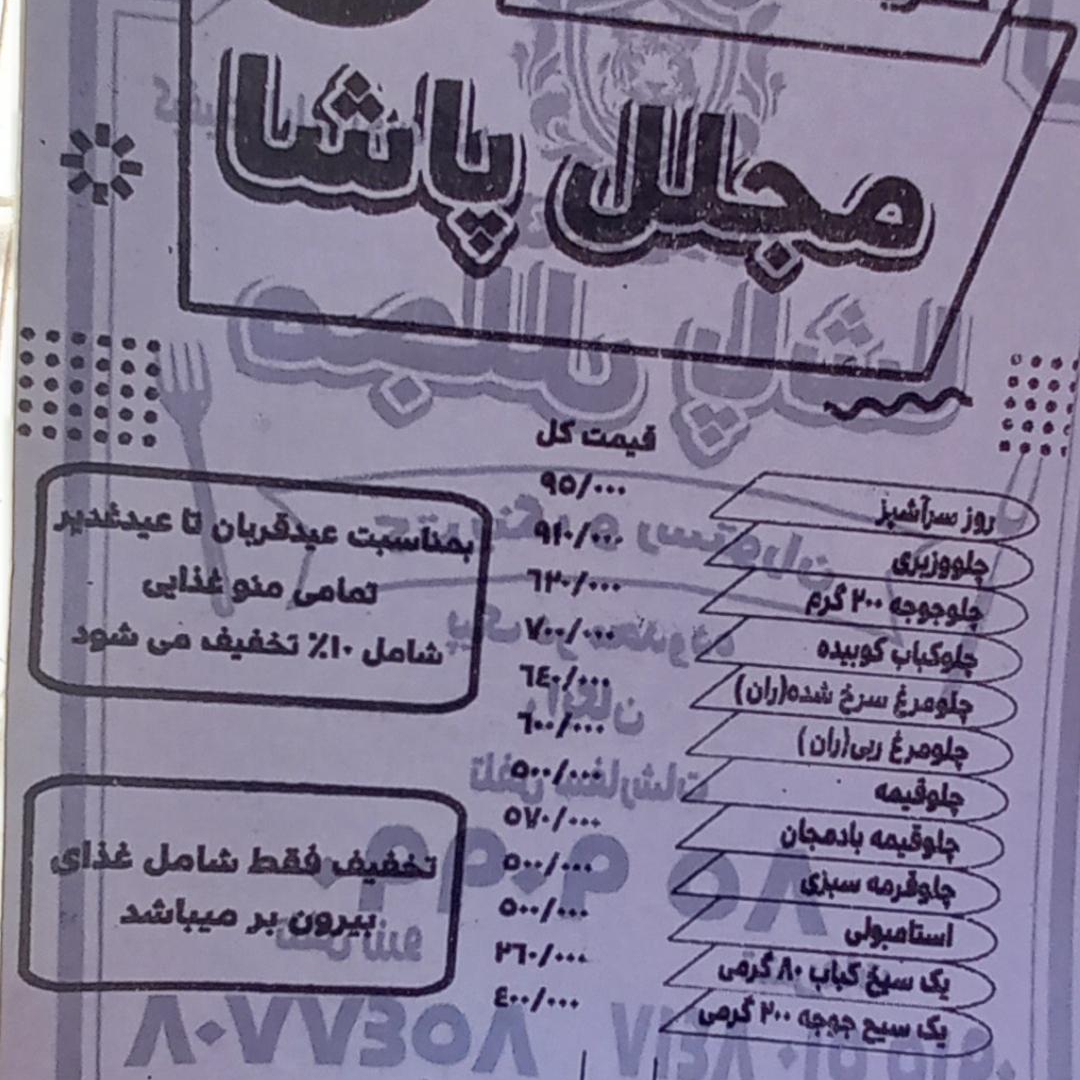 مجلل پاشا
قیمت کل
روز سرآشپز ۹۵/۰۰۰
چلووزیری ۹۱۰/۰۰۰
چلوجوجه ۲۰۰ گرم ۶۲۰/۰۰۰
چلوکباب کوبیده ۷۰۰/۰۰۰
چلومرغ سرخ شده(ران) ۶٤۰/۰۰۰
چلومرغ ربی(ران) ۶۰۰/۰۰۰
چلوقیمه ۵۰۰/۰۰۰
چلوقیمه بادمجان ۵۷۰/۰۰۰
چلوقرمه سبزی ۵۰۰/۰۰۰
استامبولی ۵۰۰/۰۰۰
یک سیخ کباب ۸۰ گرمی ۲۶۰/۰۰۰
یک سیخ جوجه ۲۰۰ گرمی ٤۰۰/۰۰۰
بمناسبت عیدقربان تا عیدغدیر
تمامی منو غذایی
شامل ۱۰٪ تخفیف می شود
تخفیف فقط شامل غذای
بیرون بر میباشد